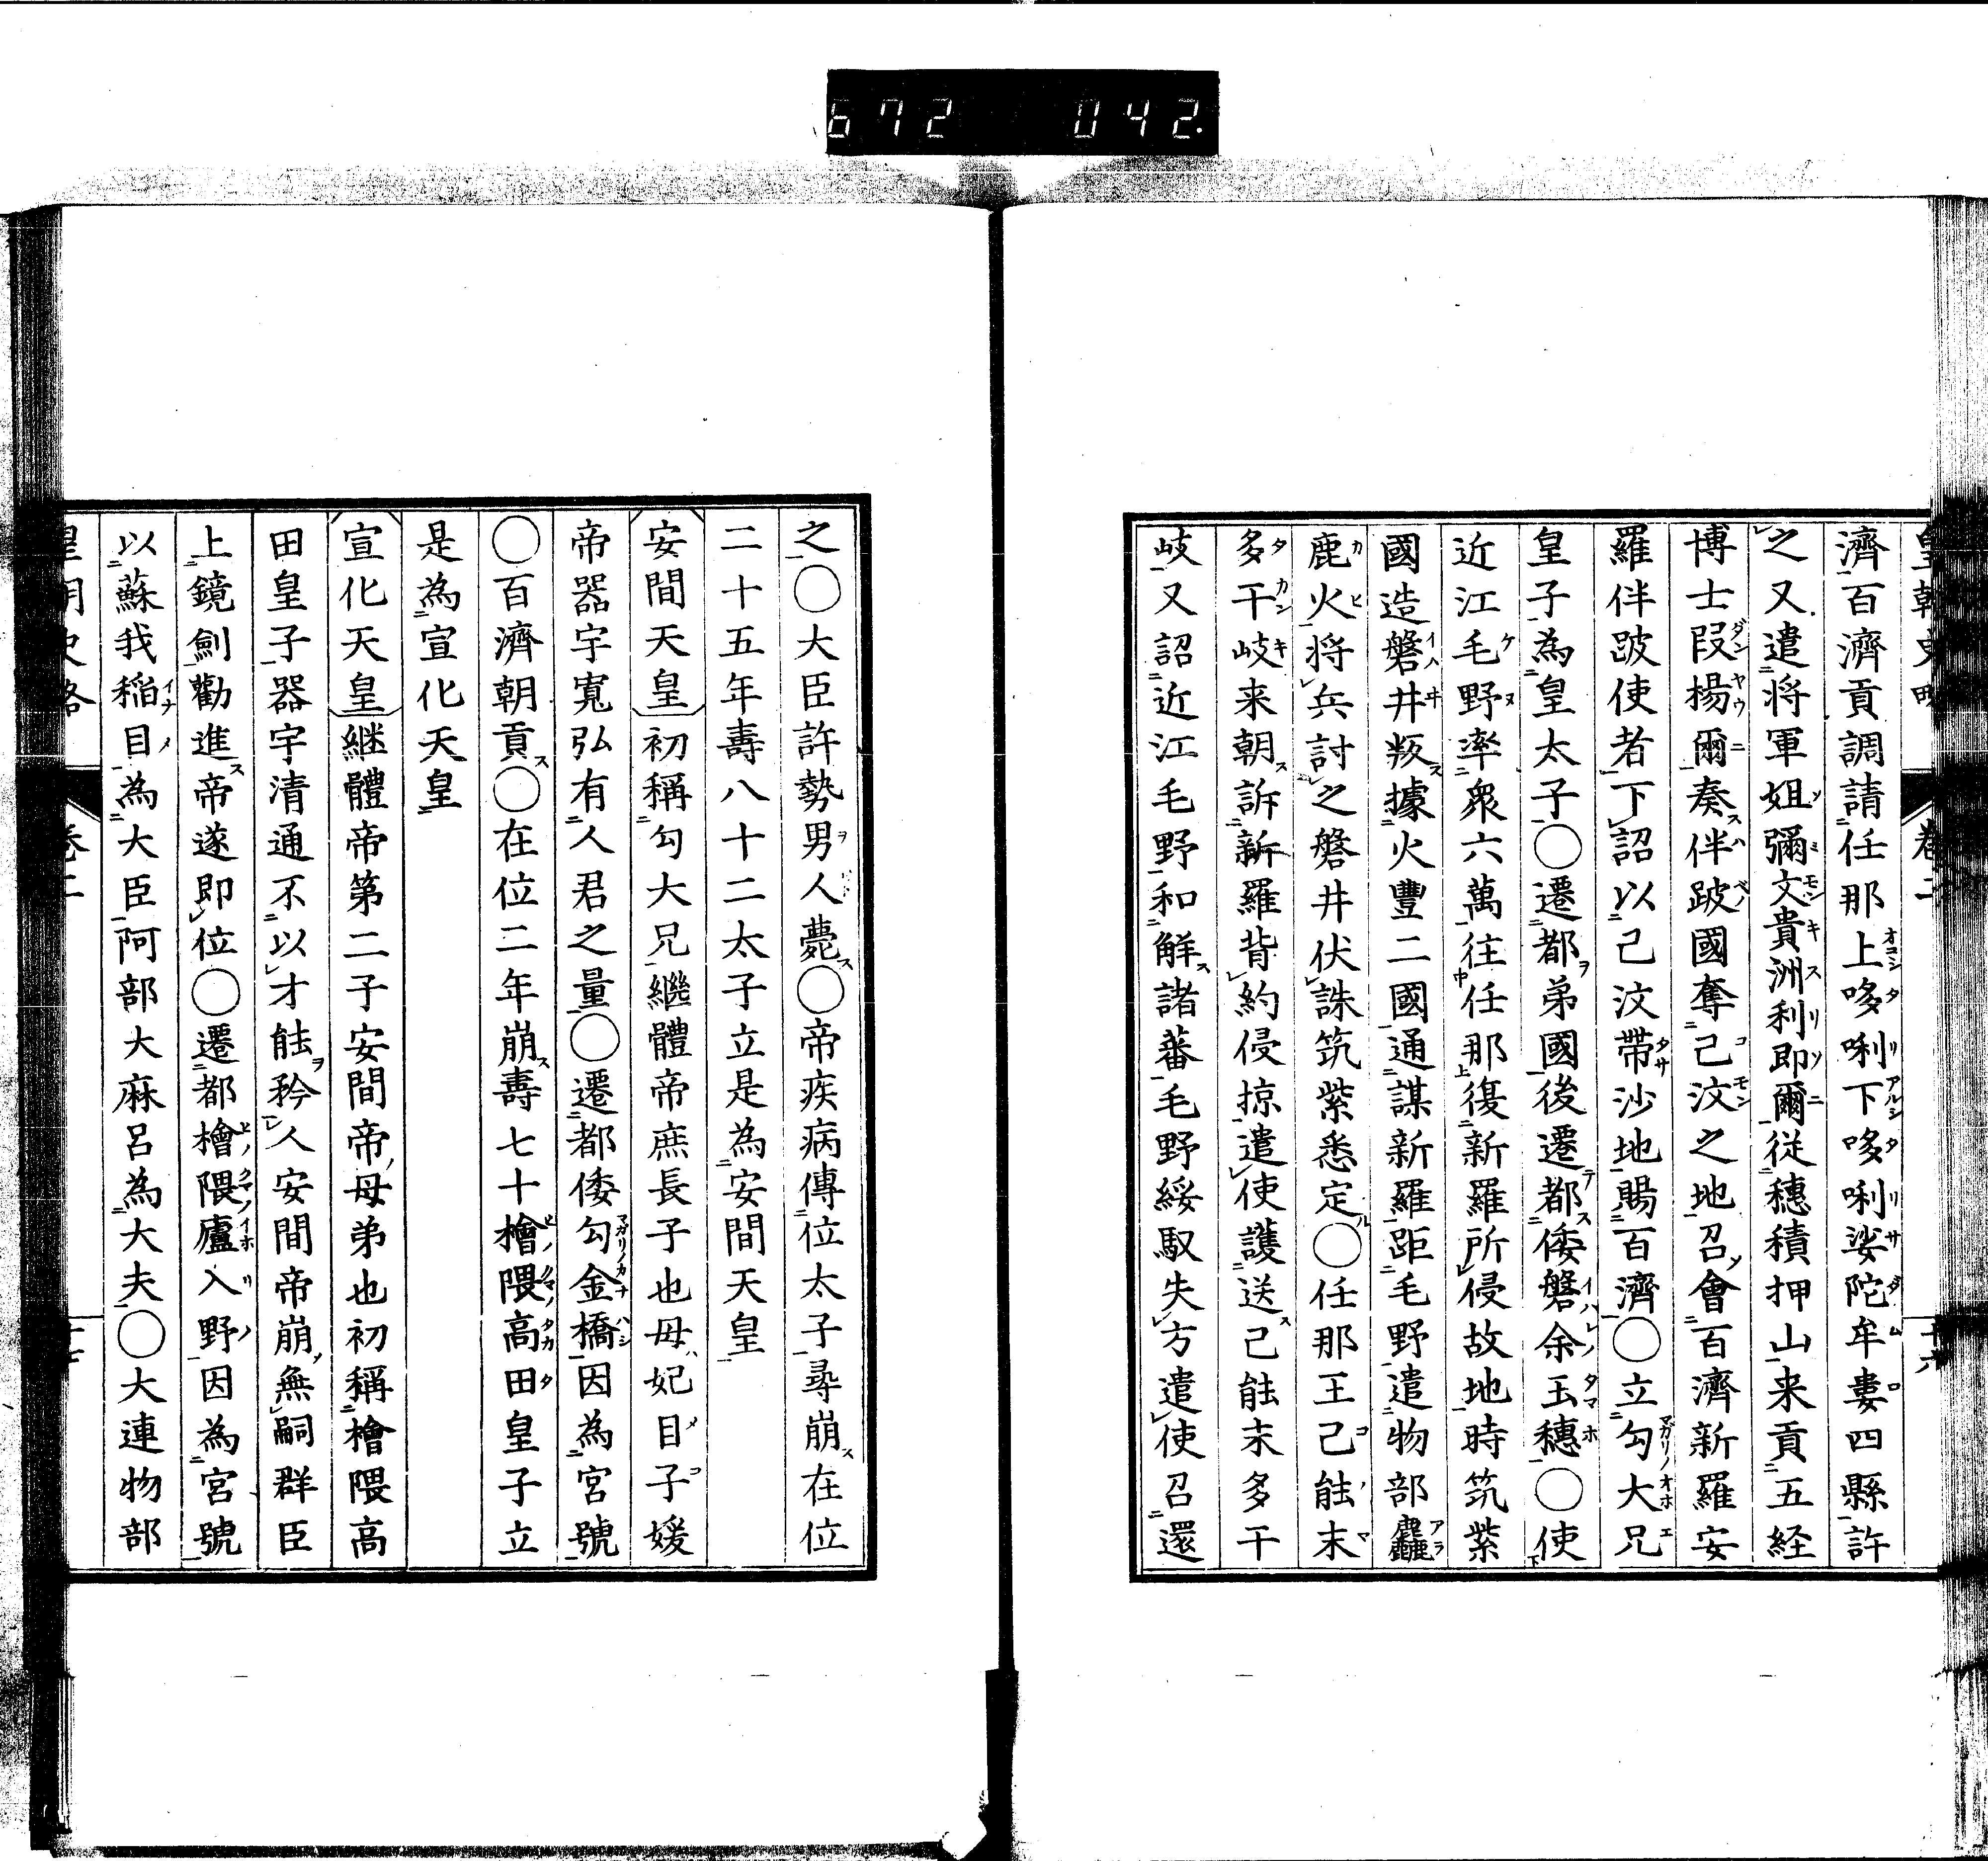 672 042.
皇朝史略 卷二 十六
濟百濟貢調請任那上哆唎下哆唎娑陀牟婁四縣許
之又遣将軍姐彌文貴洲利即爾從穗積押山来貢五経
博士段揚爾奏伴跛國奪己汶之地召會百濟新羅安
羅伴跛使者下詔以己汶帶沙地賜百濟○立勾大兄
皇子為皇太子○遷都弟國後遷都倭磐余玉穗○使
近江毛野率衆六萬往任那復新羅所侵故地時筑紫
國造磐井叛據火豐二國通謀新羅距毛野遣物部麤
鹿火将兵討之磐井伏誅筑紫悉定○任那王己能末
多干岐来朝訴新羅背約侵掠遣使護送己能末多干
岐又詔近江毛野和解諸蕃毛野綏馭失方遣使召還
之○大臣許勢男人薨○帝疾病傳位太子尋崩在位
二十五年壽八十二太子立是為安間天皇
安間天皇初稱勾大兄繼體帝庶長子也母妃目子媛
帝器宇寬弘有人君之量○遷都倭勾金橋因為宮號
○百濟朝貢○在位二年崩壽七十檜隈高田皇子立
是為宣化天皇
宣化天皇継體帝第二子安間帝母弟也初稱檜隈高
田皇子器宇清通不以才能矜人安間帝崩無嗣群臣
上鏡劍勸進帝遂即位○遷都檜隈廬入野因為宮號
以蘇我稲目為大臣阿部大麻呂為大夫○大連物部
皇朝史略 卷二 十七